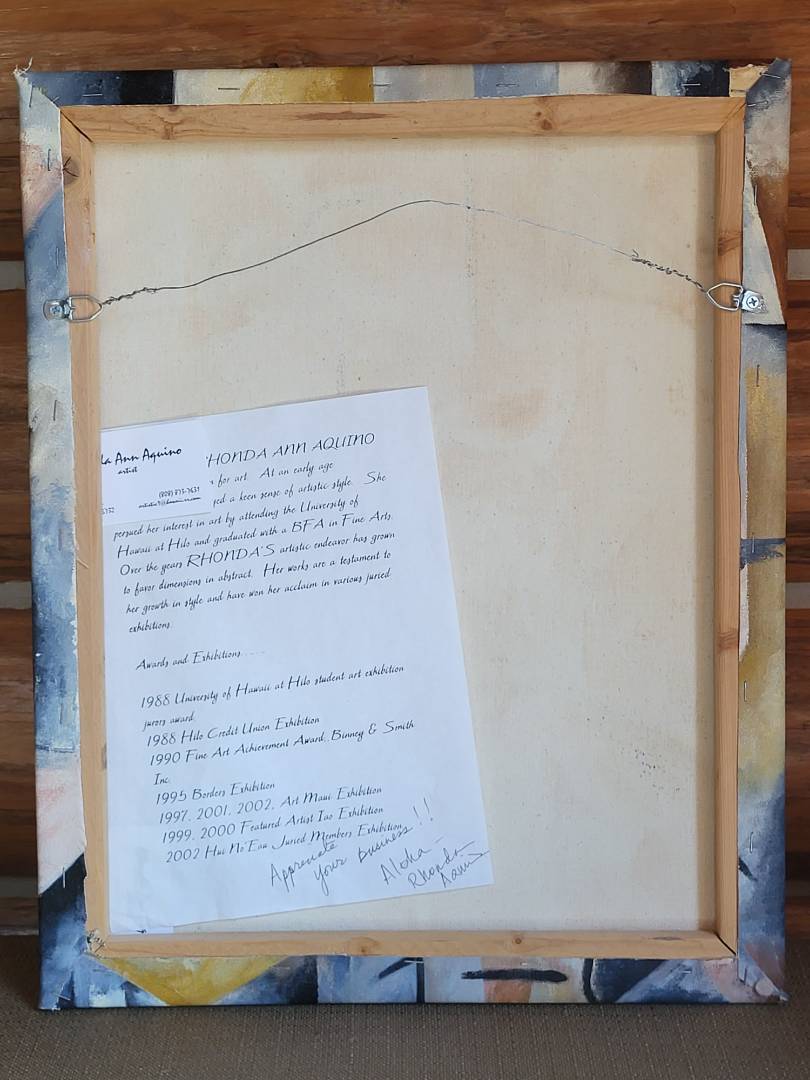 la Ann Aquino
artist
(808) 573-7631
5132
HONDA ANN AQUINO
for art. At an early age
ped a keen sense of artistic style. She
persued her interest in art by attending the University of
Hawaii at Hilo and graduated with a BFA in Fine Arts.
Over the years RHONDA'S artistic endeavor has grown
to favor dimensions in abstract. Her works are a testament to
her growth in style and have won her acclaim in various juried
exhibitions.
Awards and Exhibitions.....
1988 University of Hawaii at Hilo student art exhibition
jurors award.
1988 Hilo Credit Union Exhibition
1990 Fine Art Achievement Award, Binney & Smith
Inc.
1995 Borders Exhibition
1997, 2001, 2002, Art Maui Exhibition
1999, 2000 Featured Artist Iao Exhibition
2002 Hui No'Eau Juried Members Exhibition
Appreciate
your business!!
Aloha -
Rhonda